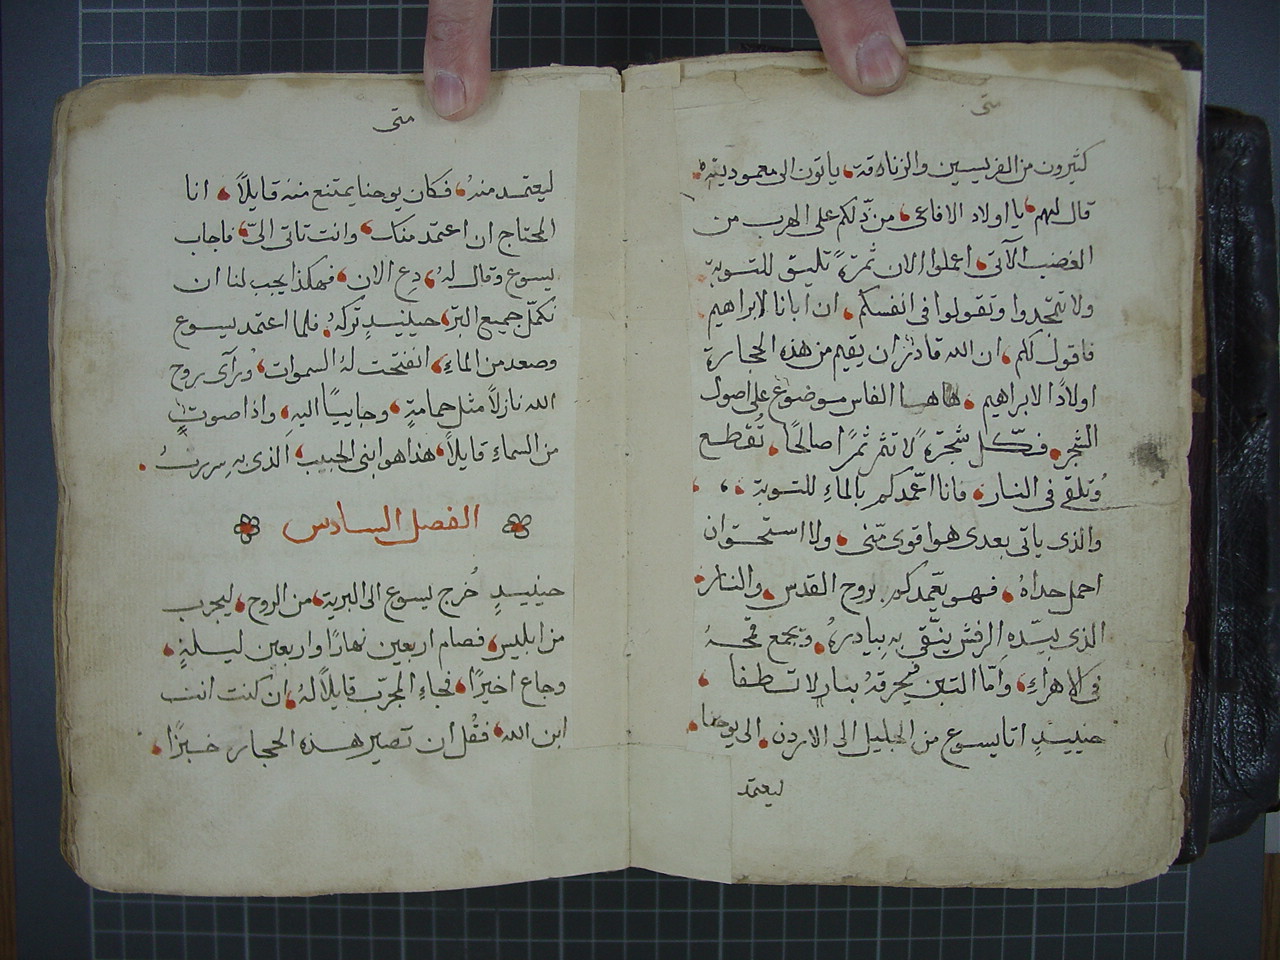 متى
كثيرون من الفريسيين والزنادقة، ياتون الى معموديته.
قال لهم، يا اولاد الافاعى، من دّلكم على الهرب من
الغضب الآتى، اعملوا الان ثمرةً تليق للتوبة.
ولا تتمجدوا وتقولوا فى انفسكم، ان ابانا لابراهيم.
فاقول لكم، ان الله قادرٌ ان يقيم من هذه الحجارة
اولادًا لابراهيم، هاهـا الفاس موضوعٌ على اصول
الشجر، فكّل شجرةً لا تثمر ثمرًا صالحًا، تُقطع
وُتلقى فى النار، فانا اعّمدكم بالماءِ للتوبة،
والذى ياتى بعدى هو اقوى مّنى، ولا استحق ان
احمل حداهُ، فهو يعّمدكم بروح القدس، والنار،
الذى بيّده الرفش ينّقى به بيادرهُ، ويجمع قمحهُ
فى الاهراءِ، وامّا التبن فيُحرقهُ بنارٍ لا تطفا،
حينيدٍ اتا يسوع من الجليل الى الاردن، الى يوحنا،
ليعتمد
متى
ليعتمد منهُ، فكان يوحنا يمتنع منه قايلاً، انا
المحتاج ان اعتمد منك، وانت تاتى الىّ، فاجاب
يسوع وقال لهُ، دعِ الان، فهكذا يجب لنا ان
نكمّل جميع البّر، حينيدٍ تركهُ، فلما اعتمد يسوع
وصعد من الماءِ، انفتحت لهُ السموات، ورآى روح
الله نازلاً مثل حمامةٍ، وجاييًا اليهِ، واذا صوتٌ
من السماءِ قايلاً، هذا هو ابنى الحبيب، الذى بهِ سررتُ.
الفصل السادس
حينيدٍ خُرج يسوع الى البرية، من الروح، ليجرب
من ابليس، فصام اربعين نهارًا واربعين ليلةٍ،
وجاع اخيرًا، فجاءِ المجرّب قايلاً لهُ، ان كنت انت
ابن الله، فقُل ان تصير هذه الحجار خبزًا،